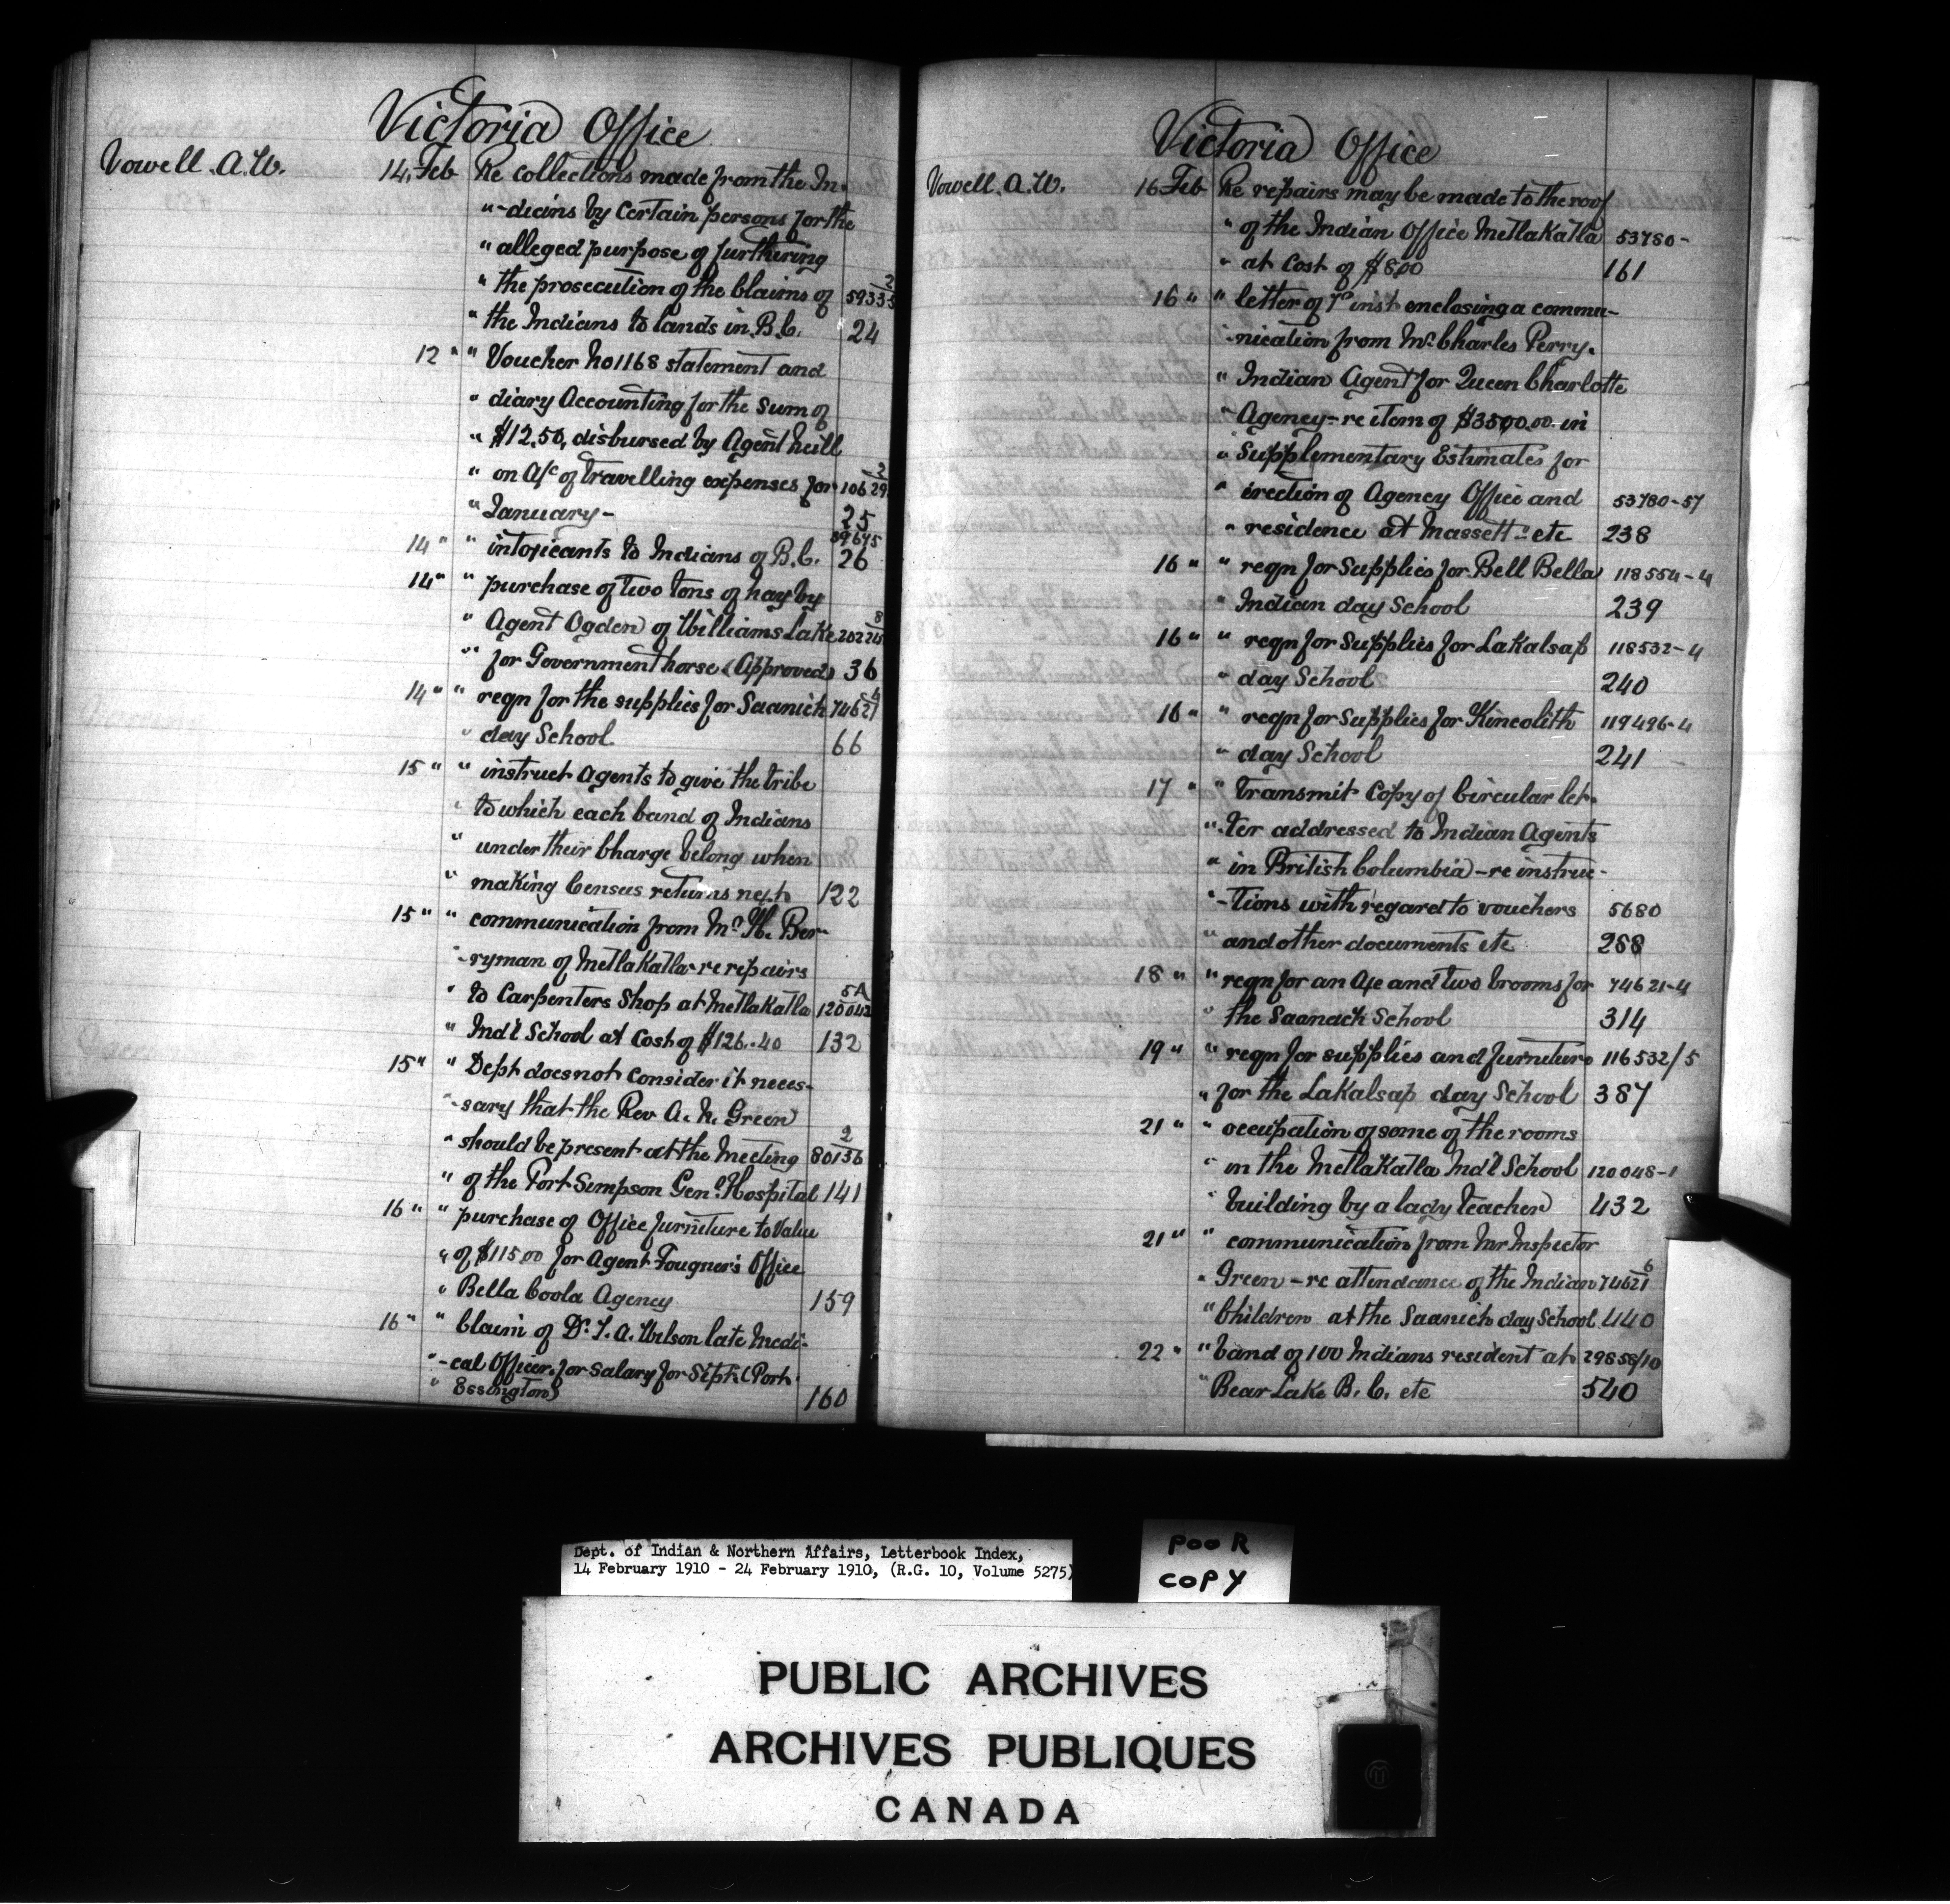 Victoria Office
Vowell. A.W. 14. Feb Re collections made from the In-
" -dians by Certain persons for the
" alleged purpose of furthering
" the prosecution of the Claims of 59335/2
" the Indians to lands in B.C. 24
12 " " Voucher No 1168 statement and
" diary Accounting for the sum of
" $12.50, disbursed by Agent Neill
" on A/c of travelling expenses for 10629/2
" January - 25
14 " " intoxicants to Indians of B.C. 26
14 " " purchase of two tons of hay by
" Agent Ogden of Williams Lake
" for Government horse (Approved) 36
14 " " reqn for the supplies for Saanich 74621/4
" day School 66
15 " " instruct Agents to give the tribe
" to which each band of Indians
" under their Charge belong when
" making Census returns next 122
15 " " communication from Mr. H. Ber-
" -ryman of Metlakatla - re repairs
" to Carpenters Shop at Metlakatla 120042/5A
" Ind'l School at Cost of $126.40 132
15 " " Dept does not consider it neces-
" -sary that the Rev A. N. Green
" should be present at the Meeting 80136/2
" of the Port Simpson Genl. Hospital 141
16 " " purchase of Office furniture to Value
" of $115.00 for Agent Fougner's Office
" Bella Coola Agency 159
16 " " Claim of Dr. J. A. Wilson late Medi-
" -cal Officer, for salary for Sept. (Port
" Essington) 160
Victoria Office
Vowell. A.W. 16 Feb Re repairs may be made to the roof
" of the Indian Office Metlakatla 53780-
" at Cost of $8.00 161
16 " " letter of 7th inst enclosing a commu-
-nication from Mr. Charles Perry.
" Indian Agent for Queen Charlotte
" Agency - re item of $3500.00 in
" Supplementary Estimates for
" erection of Agency Office and 53780-57
" residence at Massett - etc 238
16 " " reqn for Supplies for Bell Bella 118554-4
" Indian day School 239
16 " " reqn for Supplies for Lakalsap 118532-4
" day School 240
16 " " reqn for Supplies for Kincolith 119496-4
" day School 241
17 " " transmit Copy of Circular let-
" -ter addressed to Indian Agents
" in British Columbia - re instruc-
" -tions with regard to vouchers 5680
" and other documents etc 268
18 " " reqn for an Axe and two brooms for 74621-4
" the Saanach School 314
19 " " reqn for supplies and furniture 116532/5
" for the Lakalsap day School 387
21 " " occupation of some of the rooms
" in the Metlakatla Ind'l School 120048-1
" building by a lady teacher 432
21 " " communication from Mr Inspector
" Green - re attendance of the Indian 74621/6
" Children at the Saanich day School 440
22 " " band of 100 Indians resident at 29858/10
" Bear Lake B.C. etc 540
Dept. of Indian & Northern Affairs, Letterbook Index,
14 February 1910 - 24 February 1910, (R.G. 10, Volume 5275)
POOR
COPY
PUBLIC ARCHIVES
ARCHIVES PUBLIQUES
CANADA